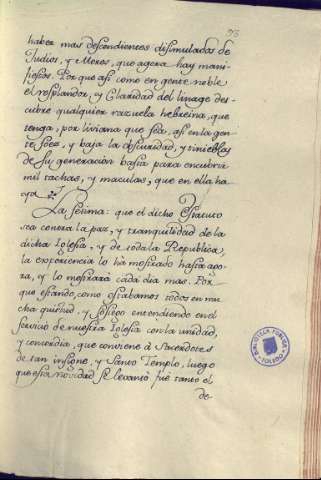 95
haber mas descendientes disimulados de
Judios, y Moros, que agora hay mani-
fiestos. Por que asi como en gente noble
el resplandor, y Claridad del linage des-
cubre qualquier razuela hebreina, que
tenga, por liviana que sea, asi en la gen
te soez, y baja la obscuridad, y tinieblas
de su generacion basta para encubrir
mil tachas, y maculas, que en ella ha-
ya.
La septima: que el dicho Estatuto
sea contra la paz, y tranquilidad de la
dicha Iglesia, y de toda la Republica,
la experiencia lo ha mostrado hasta ago-
ra, y lo mostrará cada dia mas. Por
que estando, como estabamos todos en mu
cha quietud, y sosiego entendiendo en el
servicio de nuestra Iglesia con la unidad,
y concordia, que conviene à Sacerdotes
de tan insigne, y Santo Templo, luego
que esta novedad se levantó fue tanto el
de
BIBLIOTECA PUBLICA
TOLEDO